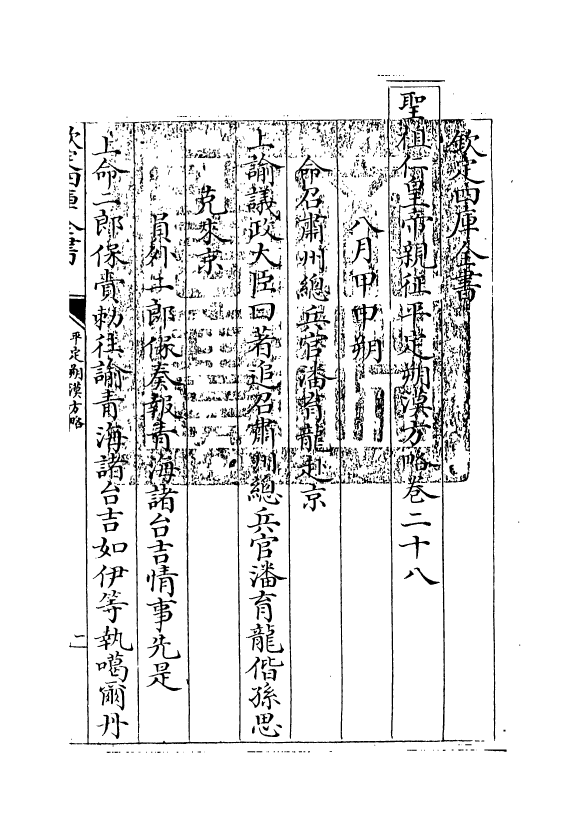 欽定四庫全書
聖祖仁皇帝親征平定朔漠方略卷二十八
八月甲申朔
命召肅州總兵官潘育龍赴京
上諭議政大臣曰著追召肅州總兵官潘育龍偕孫思
克來京
員外二郎保奏報青海諸台吉情事先是
上命二郎保賫勅往諭青海諸台吉如伊等執噶爾丹
欽定四庫全書
平定朔漠方略